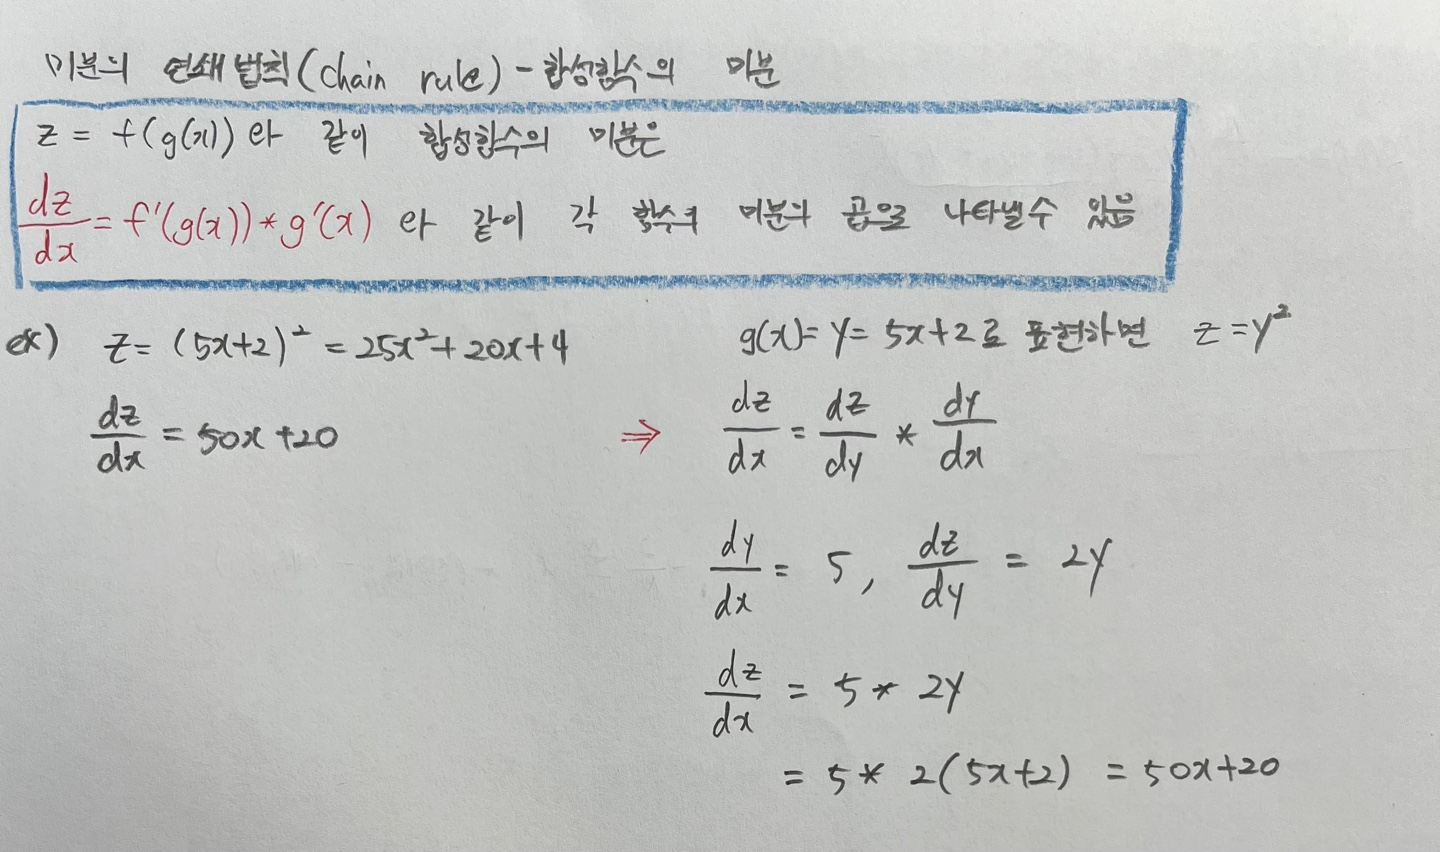 미분의 연쇄 법칙(chain rule) - 합성함수의 미분
z = f(g(x)) 와 같이 합성함수의 미분은
dz/dx = f'(g(x)) * g'(x) 와 같이 각 함수의 미분의 곱으로 나타낼 수 있음
ex) z = (5x+2)² = 25x² + 20x + 4
dz/dx = 50x + 20
⇒
g(x) = y = 5x+2로 표현하면 z = y²
dz/dx = dz/dy * dy/dx
dy/dx = 5, dz/dy = 2y
dz/dx = 5 * 2y
= 5 * 2(5x+2) = 50x+20